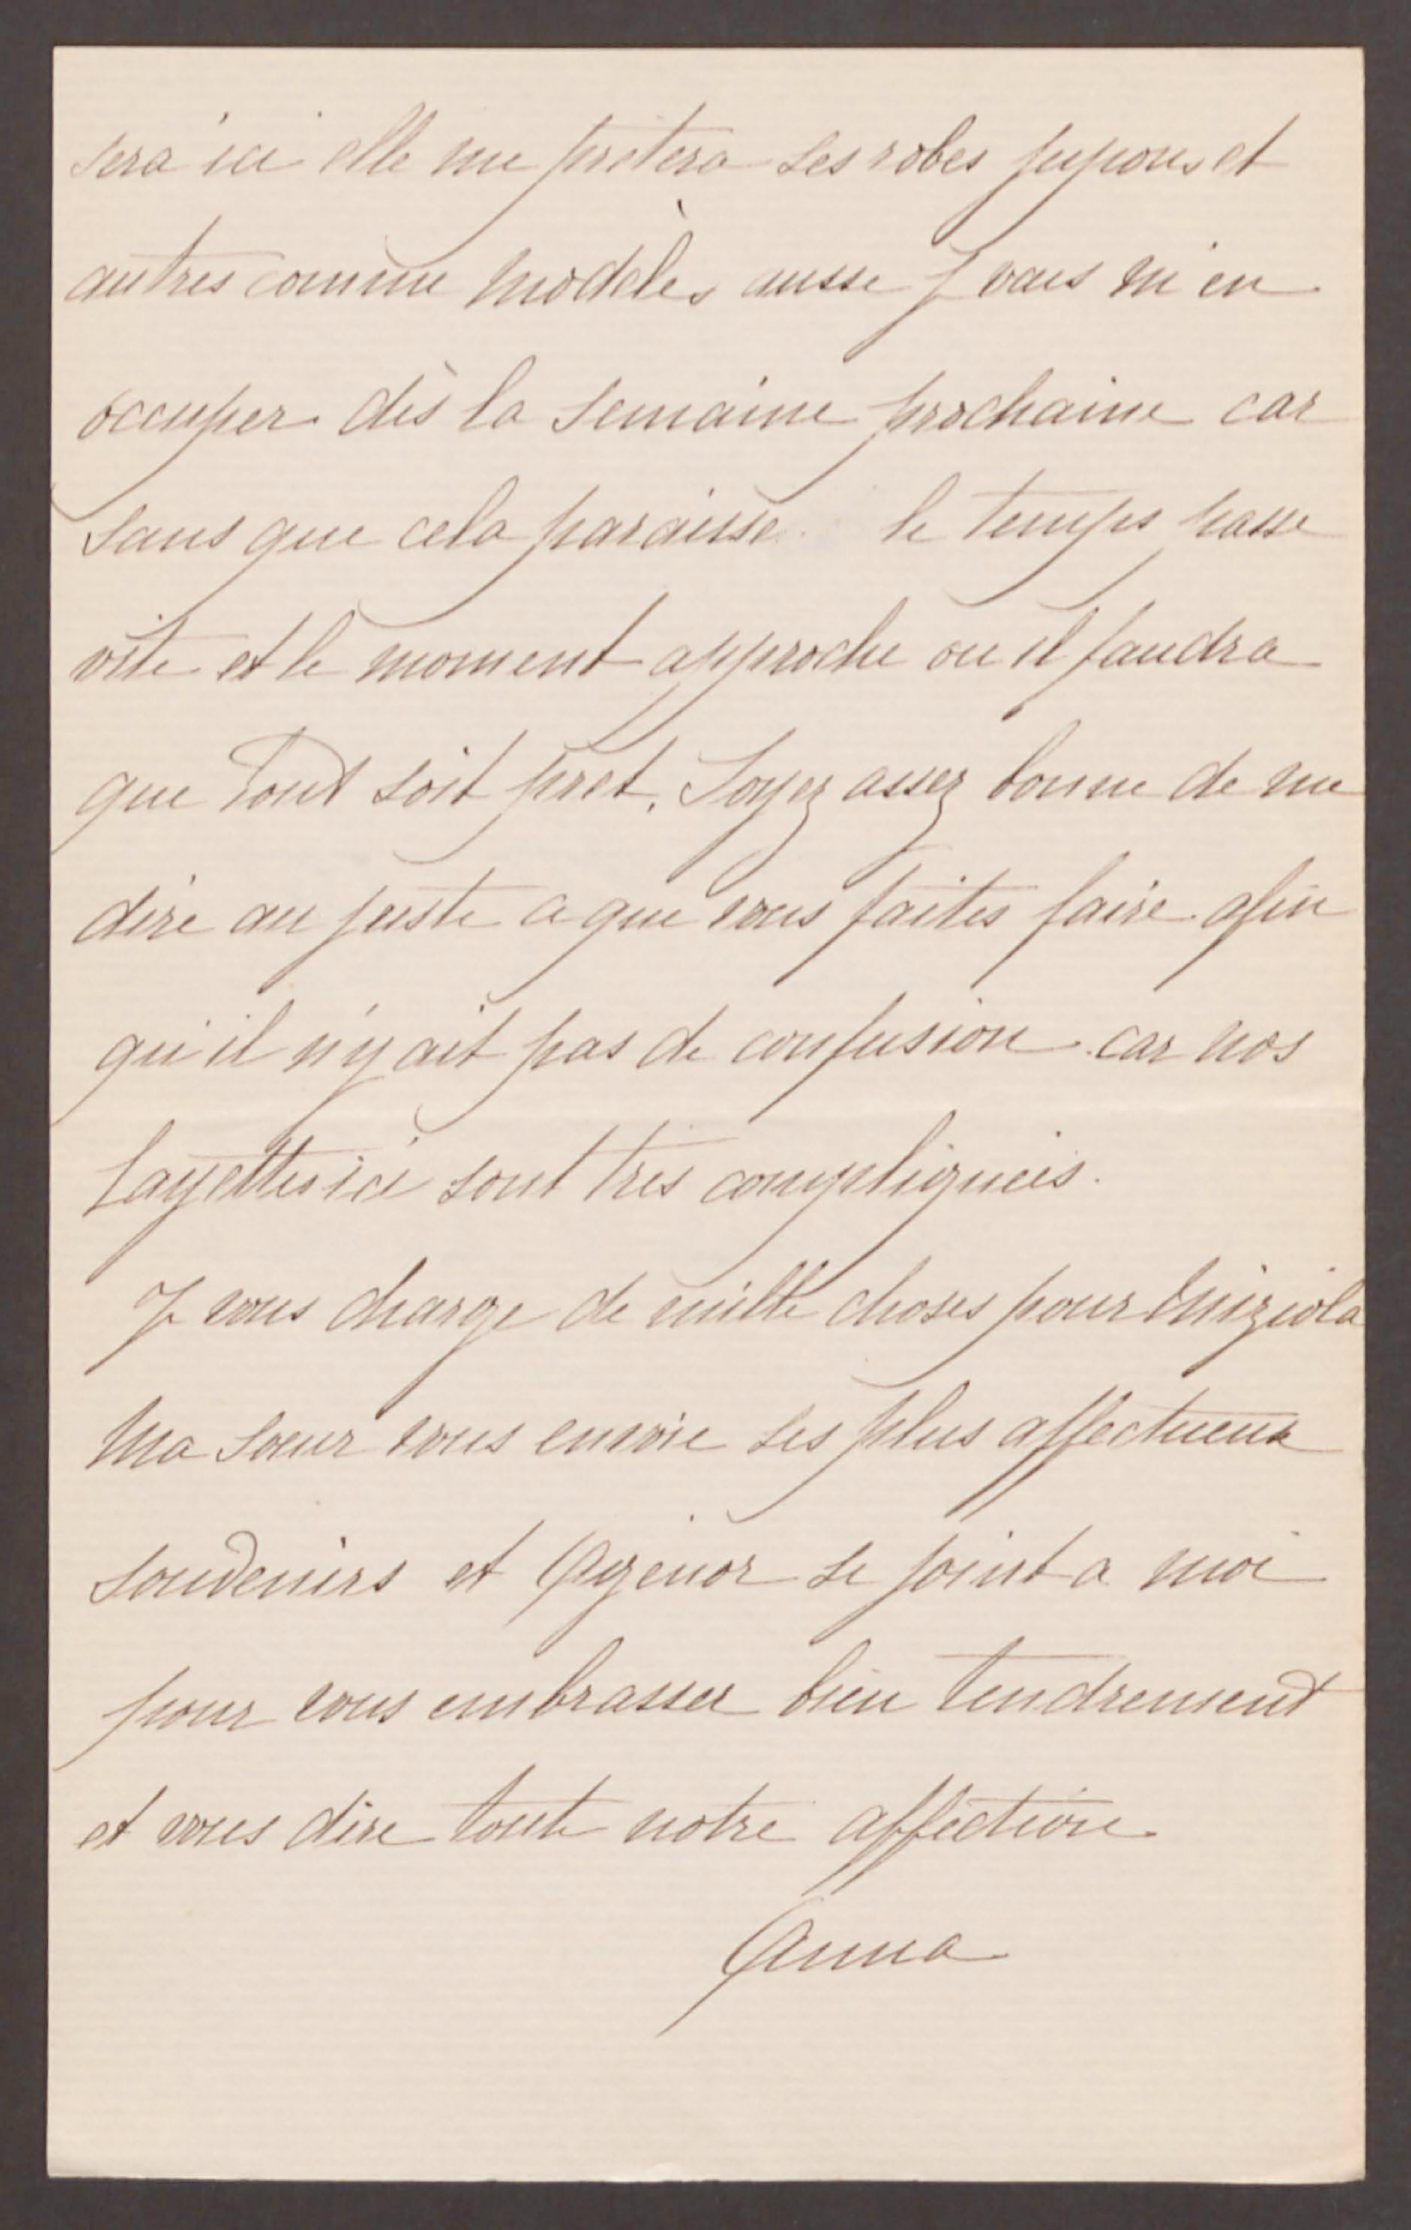 sera ici elle me prètera ses robes jupons et
autres comme modèles aussi je vais m'en
occuper dès la semaine prochaine car
sans que cela paraisse le temps passe
vite et le moment approche ou il faudra
que tout soit pret. Soyez assez bonne de me
dire au juste ce que vous faites faire afin
qu'il n'y ait pas de confusion car nos
layettes ici sont très compliquées.
Je vous charge de mille choses pour
Ma soeur vous envoie ses plus affectueux
souvenirs et Agénor se joint a moi
pour vous embrasser bien tendrement
et vous dire toute notre affection
Anna